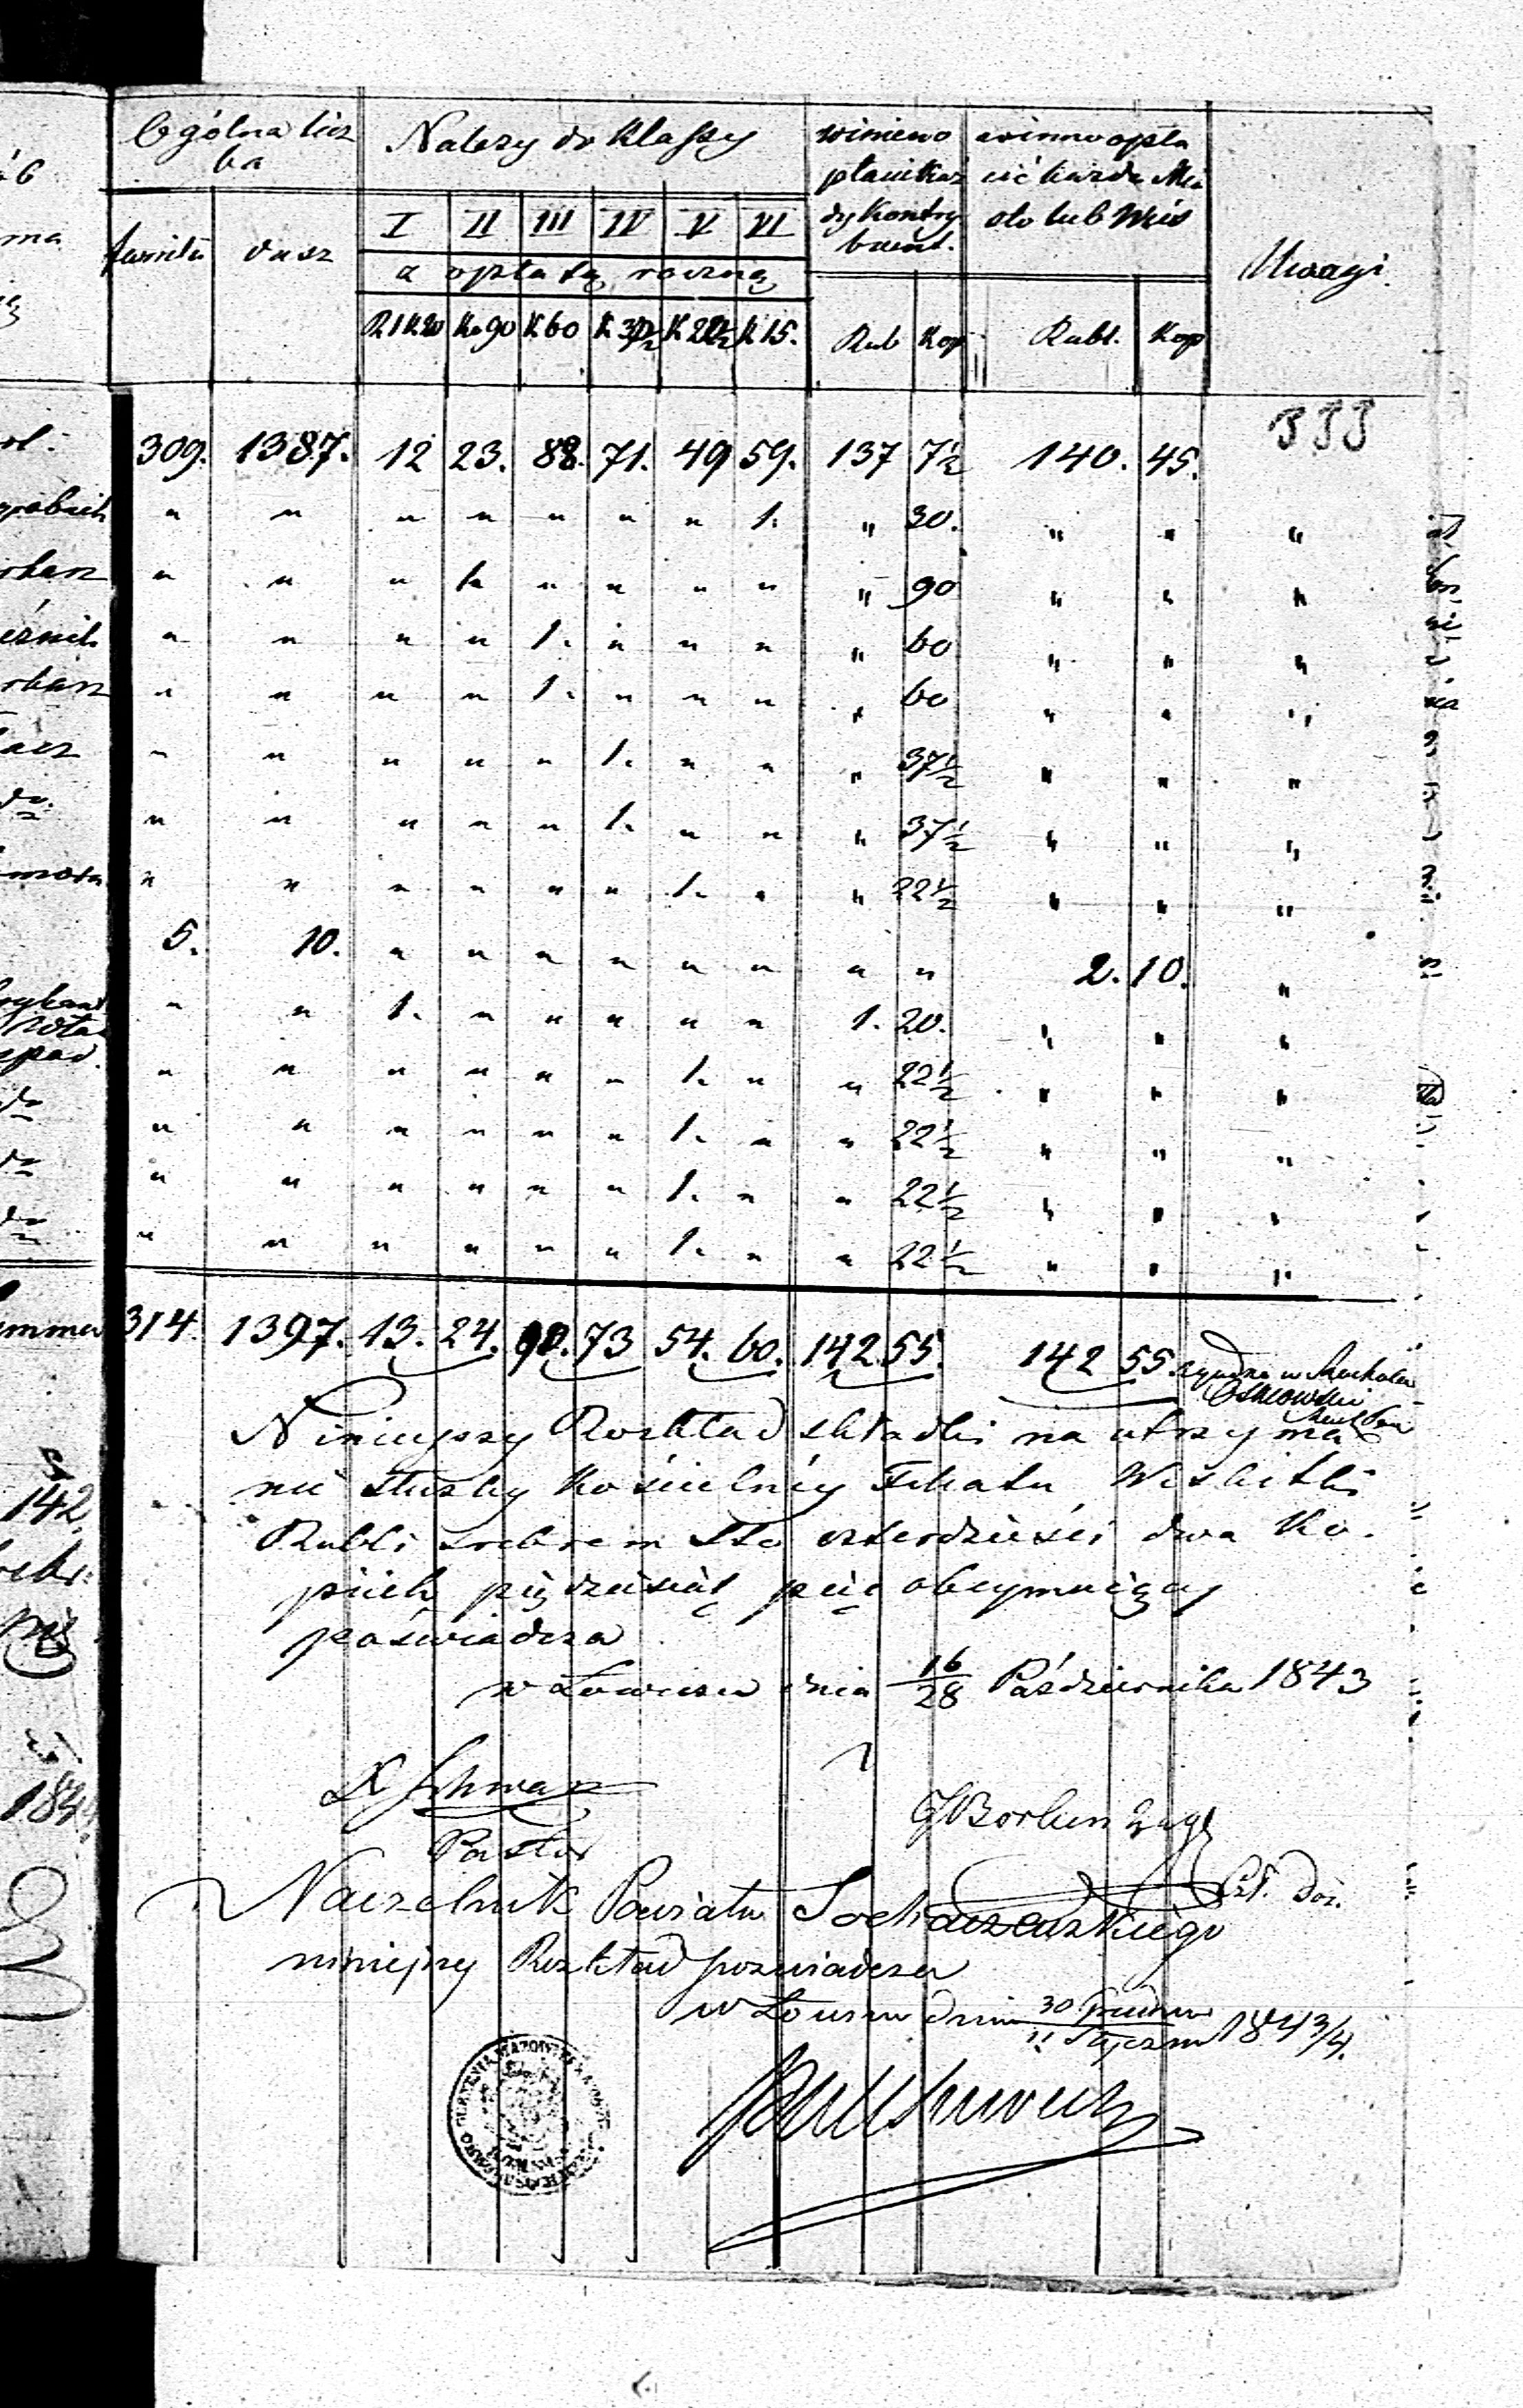 Ogólna licz
ba
Należy do Klassy
winien
płacić każ
dy kontry
buent.
winno opła
cić każde Mia
sto lub Wieś
Uwagi
familii dusz
I II III IV V VI
z opłatą roczną
R 1 K 20 Ko 90 K 60 K 37½ K 22½ K 15.
Rub Kop Rubl. Kop
309. 1387. 12 23. 88. 71. 49 59. 137 7½ 140. 45.
" " " " " " " 1. " 30. " " "
" " " 1. " " " " " 90 " " "
" " " " 1. " " " " 60 " " "
" " " " 1. " " " " 60 " " "
" " " " " 1. " " " 37½ " " "
" " " " " 1. " " " 37½ " " "
" " " " " " 1. " " 22½ " " "
5. 10. " " " " " " " " 2. 10. "
" " 1. " " " " " 1. 20. " " "
" " " " " " 1. " " 22½ " " "
" " " " " " 1. " " 22½ " " "
" " " " " " 1. " " 22½ " " "
" " " " " " 1. " " 22½ " " "
314. 1397. 13. 24. 90. 73 54. 60. 142. 55. 142 55.
Niniejszy Rozkład składki na utrzyma
nie służby Kościelnéy Filiału Wiskitki
Rubli srebrem Sto czterdzieści dwa Ko.
piiek pięćdziesiąt pięć obeymuiący
poświadcza
w Łowiczu dnia 16/28 Października 1843
Pastor
Naczelnik Powiatu Sochaczewskiego
niniejszy Rozkład poswiadcza
w Łowiczu dnia 30 Grudnia / 11 Stycznia 1843/4.
142
184